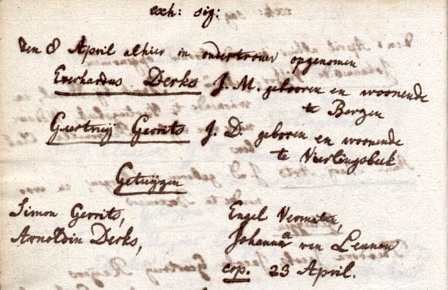 exh: sig:
den 8 April alhier in ondertrouw opgenomen
Everhardus Derks J. M. geboren en woonende
te Bergen
Geertruij Gerrits J. D. geboren en woonende
te Vierlingsbeek
Getuijgen
Simon Gerrits, Engel
Arnoldin Derks, Johanna van Lennen
cop. 23 April.